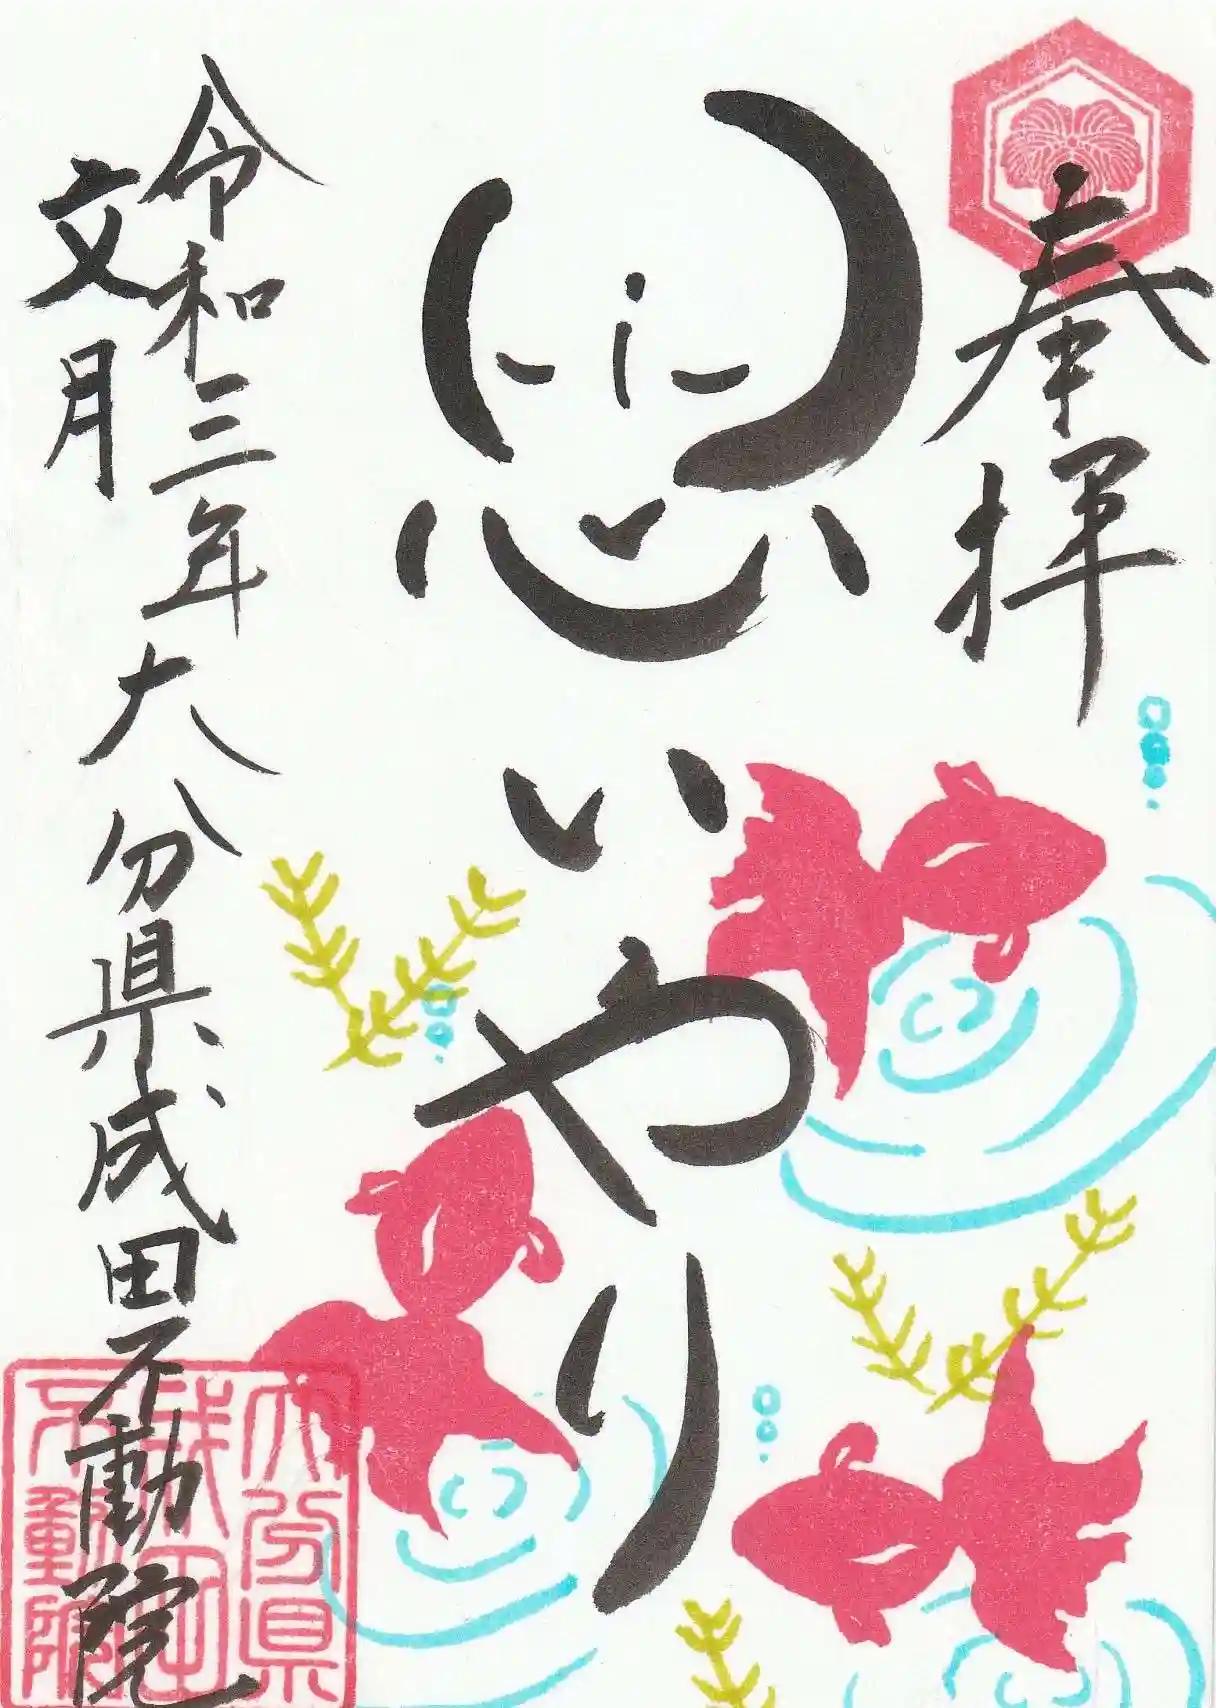 奉拝
思いやり
令和三年大分県成田不動院
文月
大分県
成田山
不動院